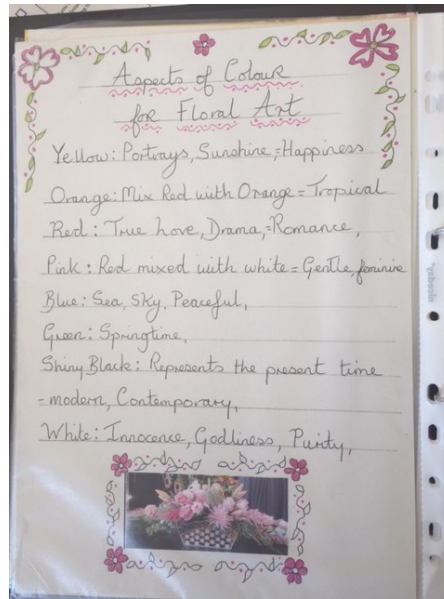 Aspects of Colour
for Floral Art
Yellow: Portrays, Sunshine, =Happiness
Orange: Mix Red with Orange = Tropical
Red: True Love, Drama, =Romance,
Pink: Red mixed with white = Gentle, feminine
Blue: Sea, Sky, Peaceful,
Green: Springtime,
Shiny Black: Represents the present time
- modern, Contemporary,
White: Innocence, Godliness, Purity,